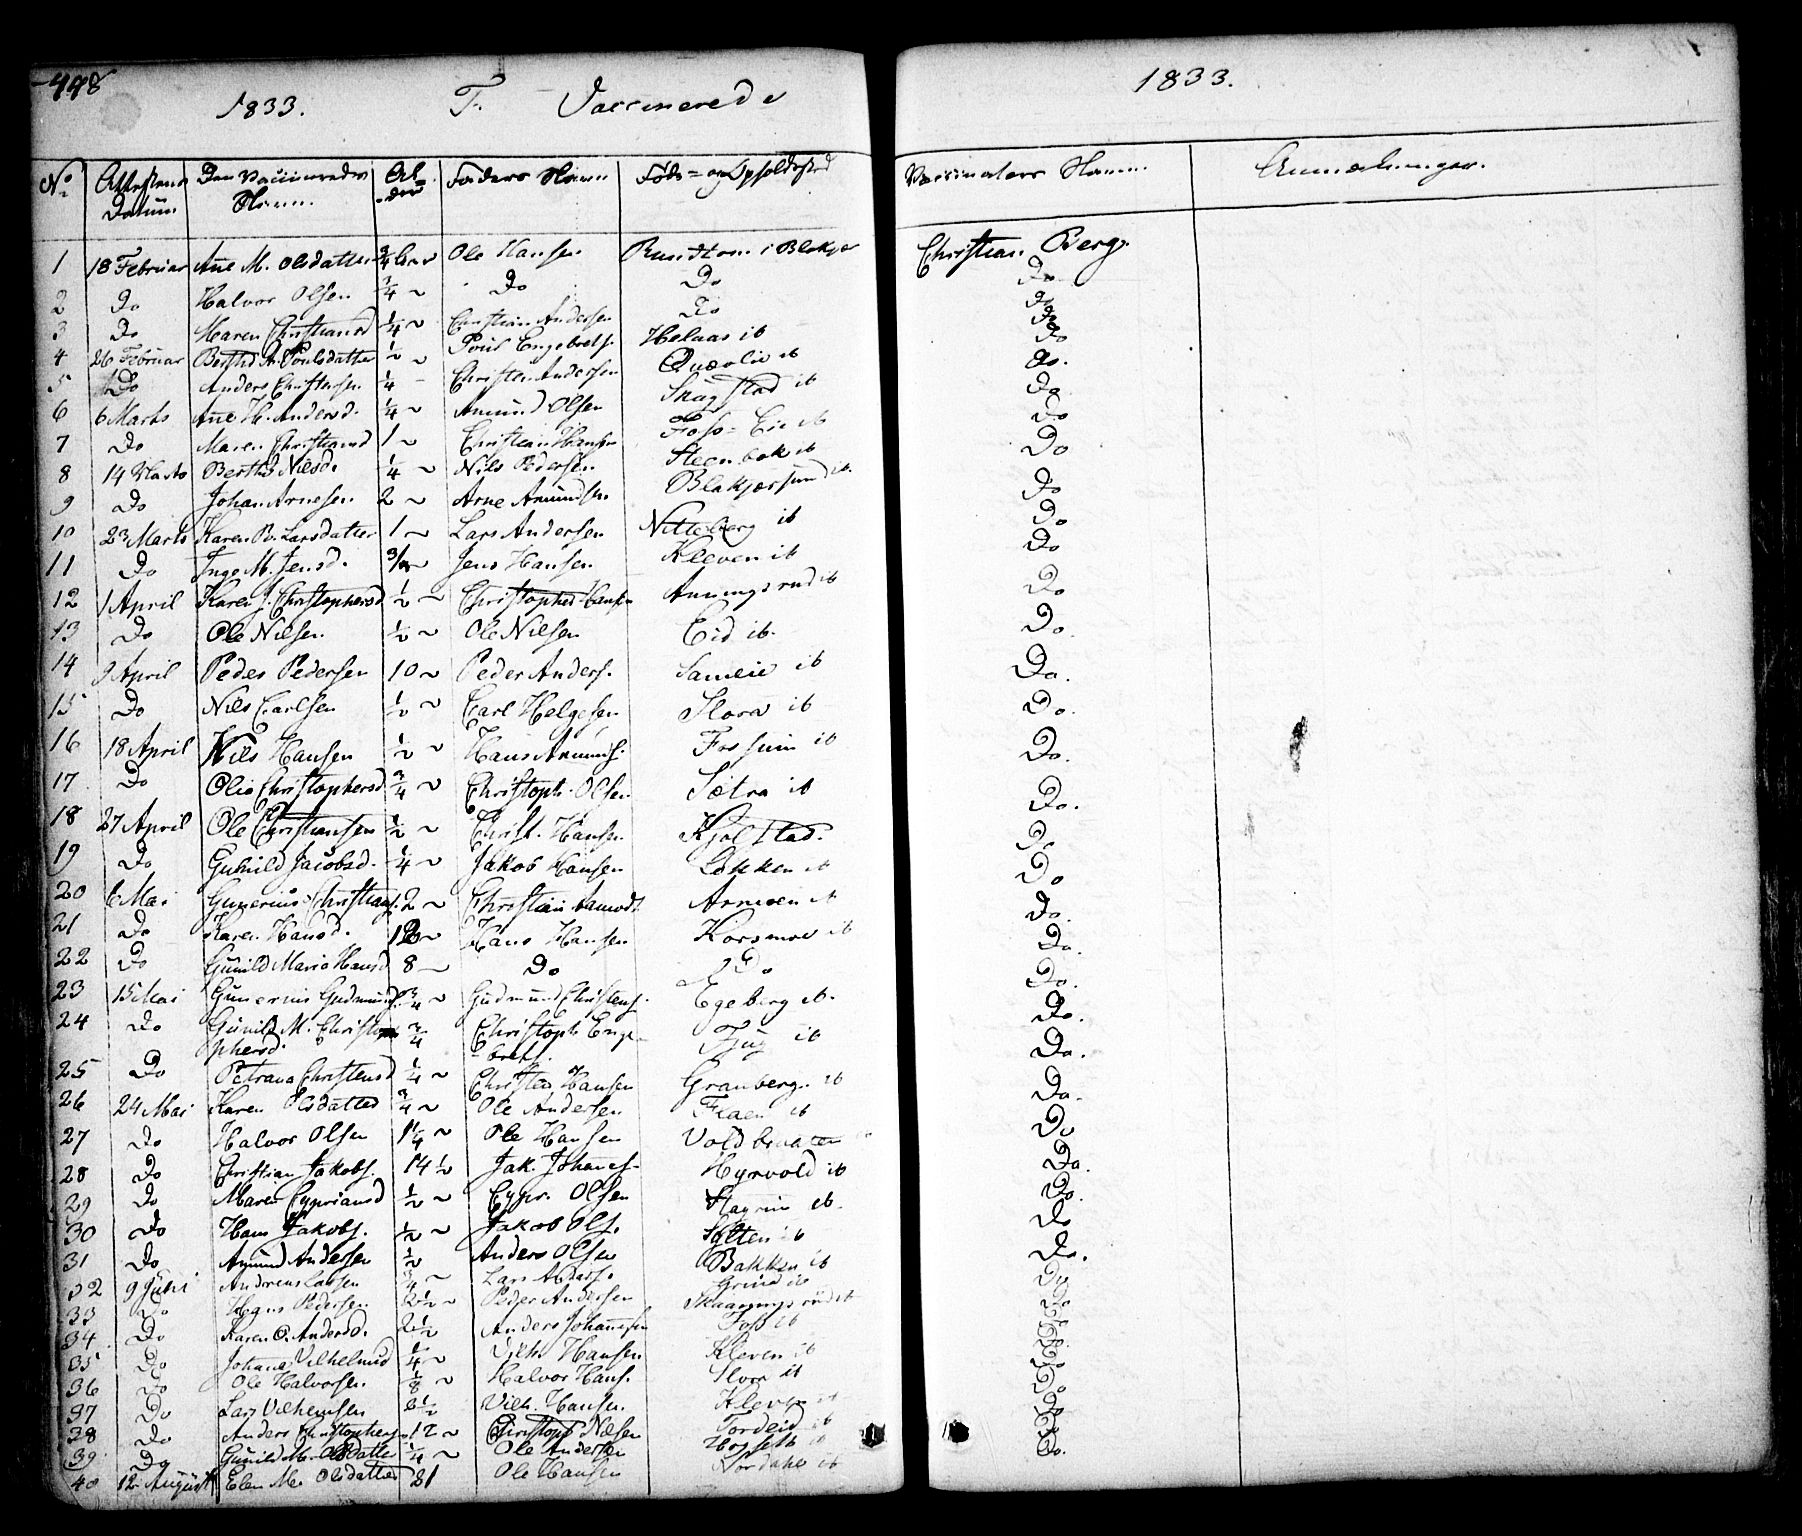 498
1833. F. Vaccinerede 1833.
No. Attestens Datum Den Vaccineredes Navn Alder Faders Navn Føds- og Opholdssted Vaccinators Navn Anmærkninger.
1 18 Februar Ane M. Olsdatter 3/4 Ole Hansen i Blakjer Christian Berg.
2 Do Halvor Olsen 1/4 ~ Do Do Do.
3 Do Maren Christiansd 1/4 ~ Christian Andersen Do Do
4 26 Februar Berthe A. Poulsdatter 1/2 ~ Poul Engebrets. Helaas ib Do
5 Do Anders Christensen 1/4 - Christen Andersen Quævlie ib Do.
6 6 Marts Ane H. Andersd. 1/4 ~ Amund Olsen Skugstad ib Do
7 Do Maren Christiansd 1 ~ Christian Hansen Foss-Eie ib Do
8 14 Marts Berthe Nilsd. 1/4 ~ Nils Pedersen Steenbæk ib Do
9 Do Johan Arnesen 2 ~ Arne Amundsen Blakjersund ib. Do
10 23 Marts Karen B. Larsdatter 1 ~ Lars Andersen Nitteberg ib Do
11 Do Inge M. Jensd. 3/4 ~ Jens Hansen Kleven ib Do
12 1 April Karen J. Christophersd 1/2 ~ Christopher Hansen Anningsrud ib Do
13 Do Ole Nilsen 1/2 ~ Ole Nilsen Eid ib. Do.
14 9 April Peder Pedersen 10 ~ Peder Anders. Sameie ib Do.
15 Do Nils Carlsen 1/2 ~ Carl Helgesen Slora ib Do.
16 18 April Nils Hansen 1/2 ~ Hans Amunds. Fossum ib Do.
17 Do Olia Christophersd 3/4 ~ Christoph. Olsen Sætra ib Do.
18 27 April Ole Christiansen 1/2 ~ Christ. Hansen Kjølstad. Do
19 Do Gunild Jacobsd. 1/4 ~ Jakob Hansen Løkken ib Do
20 6 Mai Gunerius Christians. 2 ~ Christian Aamodt Armoen ib Do.
21 Do Karen Hansd. ~ Hans Hansen Korsmoe ib Do.
22 Do Gunild Maria Hansd 8 ~ Do Do Do.
23 15 Mai Gunerius Gudmunds. 3/4 ~ Gudmund Christens. Egeberg ib. Do.
24 Do Gunild M. Christophersd. 3/4 Christoph Engebrets. Fjug ib Do.
25 Do Petrana Christensd 1/4 ~ Christen Hansen Granberg. ib Do.
26 24 Mai Karen Olsdatter 3/4 ~ Ole Andersen Flaen ib Do
27 Do Halvor Olsen 1 1/4 ~ Ole Hansen Voldbraaten Do.
28 Do Christian Jakobs. 14 1/2 Jak. Johanes. Hyrvold ib Do.
29 Do Maren Cyprians d 1/2 ~ Cypr. Olsen ib. Do
30 Do Hans Jakobs. 1/2 ~ Jakob Ols. Sylten ib Do.
31 Do Amund Andersen 1/2 Anders Olsen Bakken ib Do
32 9 Juni Andreas Larsen 3/4 ~ Lars Anders. Grini ib Do
33 Do Hans Pedersen 2 1/2 ~ Peder Andersen Skaaningsrud ib Do
34 Do Karen O. Andersd. 2 1/2 Anders Johannesen Foss ib Do
35 Do Johana Vilhelmsd 1/4 ~ Vilh. Hansen Kleven ib Do
36 Do Ole Halvorsen 1/8 ~ Halvor Hans. Slora ib Do
37 Do Lars Vilhelmsen 2 1/2 Vilh. Hansen Kleven ib Do
38 Do Anders Christophers. 12 ~ Christoph Nilsen Tordeid ib Do
39 Do Gunild M. Olsdatter 1/4 ~ Ole Andersen ib Do.
40 12 August Elen M. Olsdatter 21 Ole Hansen Nordahl ib